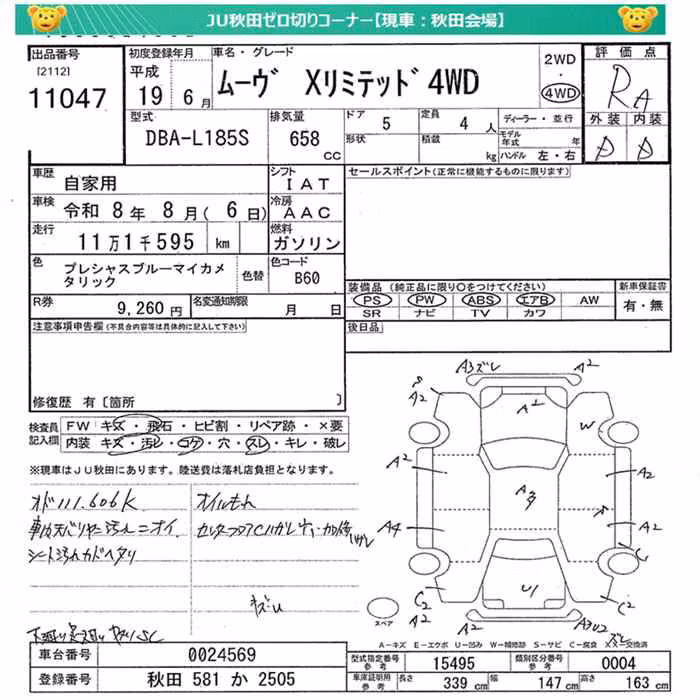 JU秋田ゼロ切りコーナー【現車：秋田会場】
出品番号
[2112]
11047
初度登録年月
平成
19 6 月
車名・グレード
ムーヴ Xリミテッド 4WD
2WD
・
4WD
評価点
RA
外装 内装
D D
型式
DBA-L185S
排気量
658
CC
ドア
5
定員
4 人
形状
積載
kg
ディーラー・並行
モデル年式 年
ハンドル 左・右
車歴
自家用
シフト
IAT
車検
令和 8 年 8 月( 6 日)
冷房
AAC
走行
11万1千595 km
燃料
ガソリン
色
プレシャスブルーマイカメタリック
色替
色コード
B60
R券
9,260 円
名変通知期限
月 日
セールスポイント(正常に機能するものに限ります)
装備品 (純正品に限り○をつけてください)
PS PW ABS エアB AW
SR ナビ TV カワ
新車保証書
有・無
後日品
注意事項申告欄(不具合内容等は具体的に記入して下さい)
修復歴 有〔箇所 〕
検査員記入欄
FW キズ・飛石・ヒビ割・リペア跡・×要
内装 キズ・汚レ・コゲ・穴・スレ・キレ・破レ
※現車はJU秋田にあります。陸送費は落札店負担となります。
オド111.606K
オイルもれ
シート汚れ
A3 ズレ
A2
S
A2
A2
A1
W
A2
A2
A3
S
A4
A2
C
C2
U1
C2
A2
A3 U2
ズレ
スペア
A－キズ E－エクボ U－凹み W－補修跡 S－サビ C－腐食 ××－交換済
車台番号
0024569
登録番号
秋田 581 か 2505
型式指定番号
参考
15495
類別区分番号
参考
0004
車庫証明用
参考
長さ
339 cm
幅
147 cm
高さ
163 cm